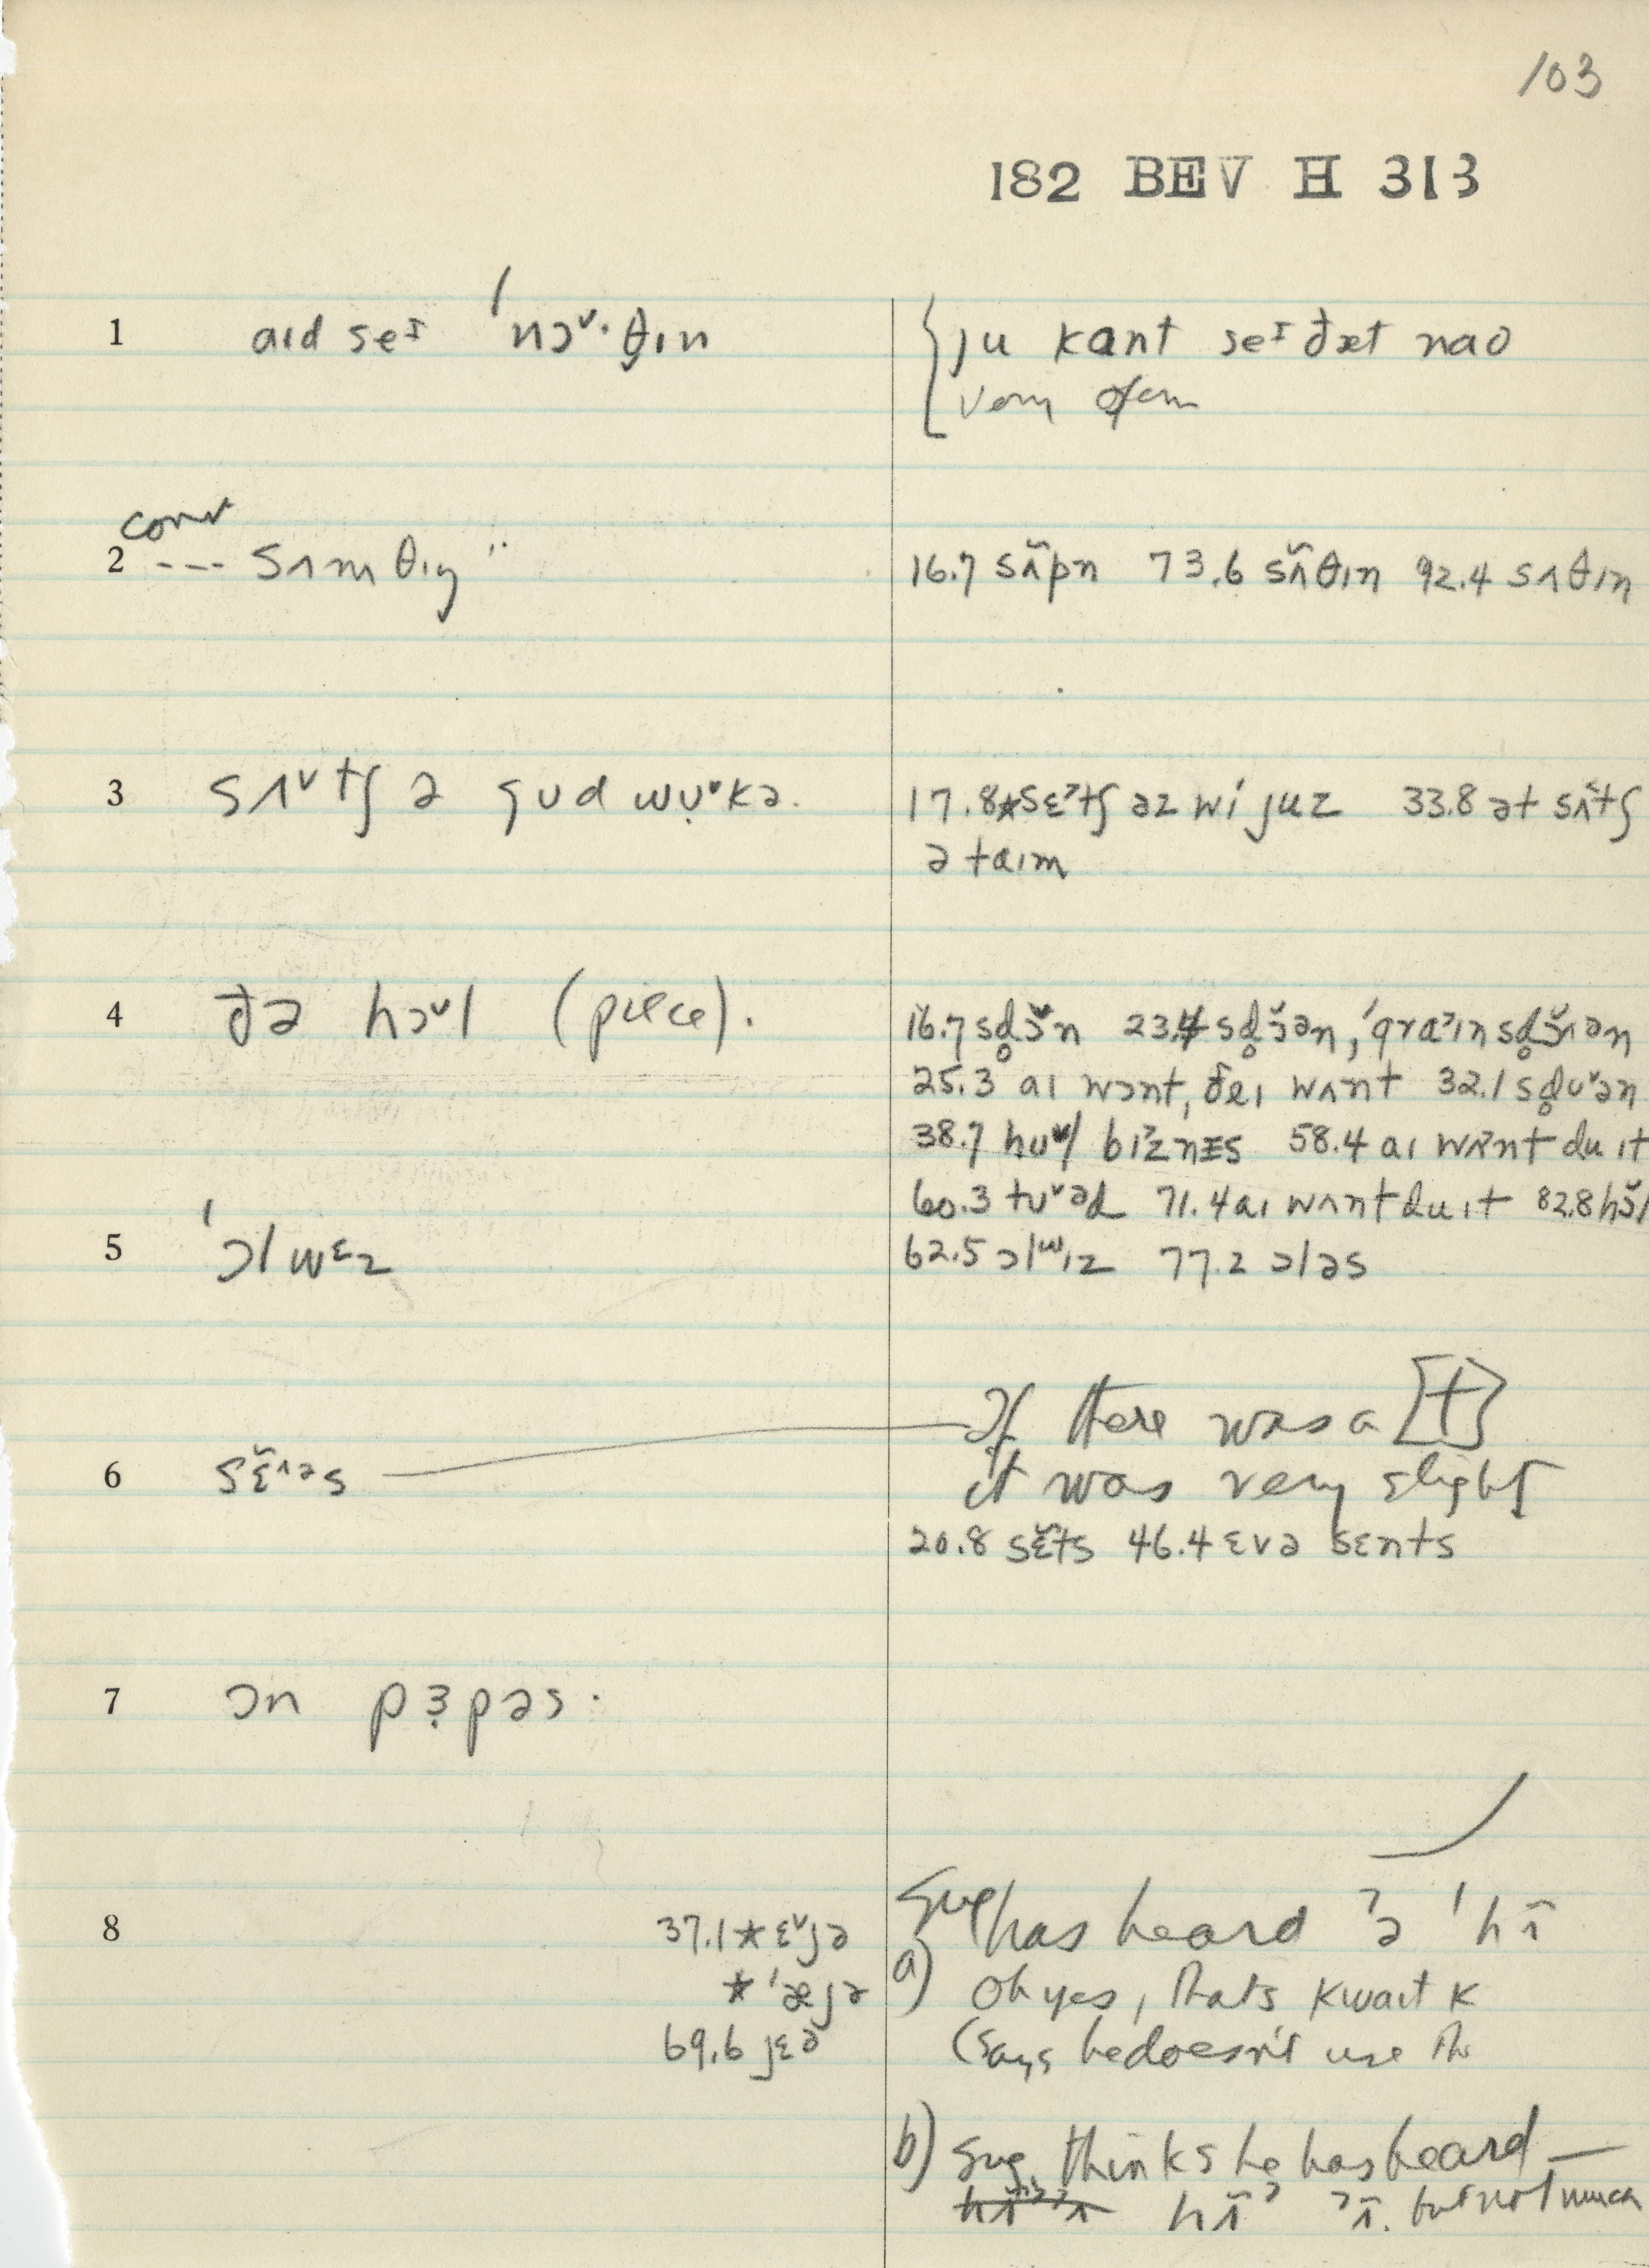 103
182 BEV H 313
1 aɪd seᶦ ˈnɔ˅·θ̣ɪn
{ ju kant seᶦ ðæt naʊ
very often
conv
2 --- sʌmθɪŋ ¨
16.7 sʌ̃pn 73.6 sʌ̃θɪn 92.4 sʌθɪn
3 sʌ˅tʃ ə gʊd wʊ̣˅kə.
17.8 *sɛˀtʃ əz wi juz 33.8 ət sʌ̃tʃ
ə taɪm
4 ðə hɔ˅l (piece).
16.7 23.4
25.3 aɪ wɔnt, ðeɪ wʌnt 32.1 sd̥ʊ˅ən
38.7 58.4 aɪ wʌnt du ɪt
60.3 tʊ˅əd 71.4 aɪ wʌnt du ɪt 82.8
5 ˈɔlwᵋz
62.5 ɔlʷɪz 77.2 ɔləs
If there was a [t]
6
it was very slight
20.8 sɛ̃ts 46.4 ɛvə sɛnts
7 ɔn pɜ̣pəs.
8 37.1 * ɛ˅jə
* ˈæjə
69.6 jɛə
Sug has heard ˀə ˈhĩ
a) Oh yes, that's kwaɪt k
(Says he doesn't use th
b) Sug. thinks he has heard —
hĩˀ ˀĩ. but not much